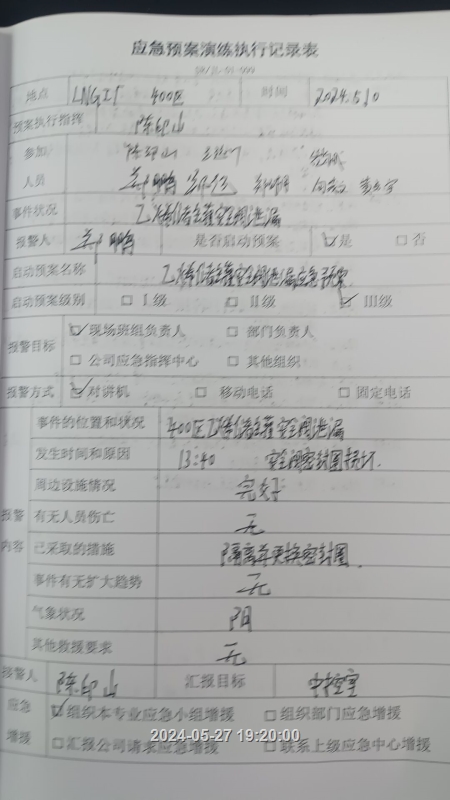 应急预案演练执行记录表
地点 LNG 400区 时间 2024.5.10
预案执行指挥 陈印山
参加 陈印山
人员
事件状况 乙烯储罐安全阀泄漏
报警人 是否启动预案 ☑是 □否
启动预案名称 乙烯储罐安全阀泄漏应急预案
启动预案级别 □Ⅰ级 □Ⅱ级 ☑Ⅲ级
报警目标 ☑现场班组负责人 □部门负责人
□公司应急指挥中心 □其他组织
报警方式 ☑对讲机 □移动电话 □固定电话
事件的位置和状况 400区乙烯储罐安全阀泄漏
发生时间和原因 13:40 安全阀密封圈损坏.
周边设施情况 完好
报警 有无人员伤亡 无
内容 已采取的措施 隔离并更换密封圈.
事件有无扩大趋势 无
气象状况 阴
其他救援要求 无
报警人 陈印山 汇报目标 中控室
应急 ☑组织本专业应急小组增援 □组织部门应急增援
增援 □汇报公司请求应急增援 □联系上级应急中心增援
2024-05-27 19:20:00